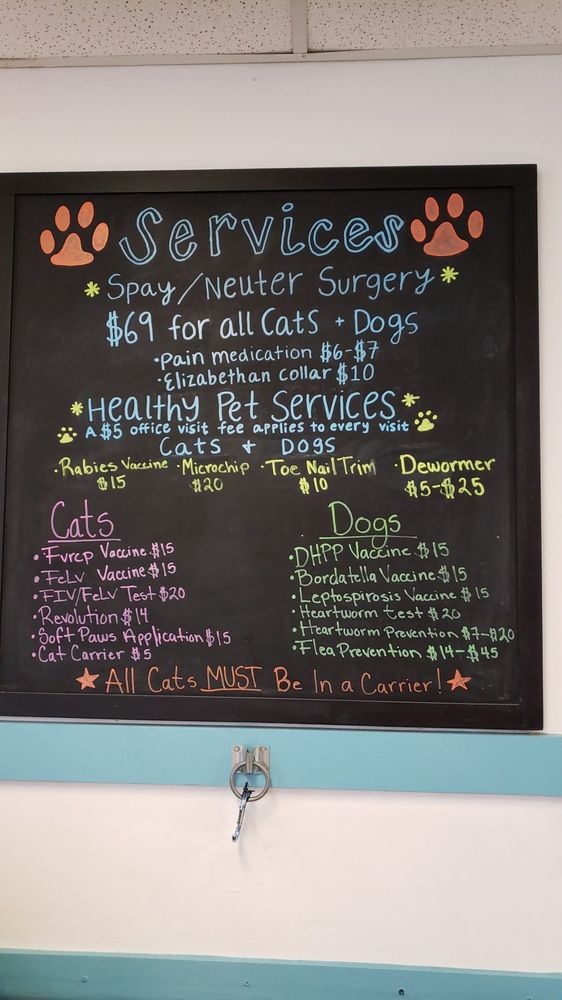 Services
* Spay/Neuter Surgery *
$69 for all Cats + Dogs
·Pain medication $6-$7
·Elizabethan collar $10
*Healthy Pet Services*
A $5 office visit fee applies to every visit
Cats + Dogs
·Rabies Vaccine ·Microchip ·Toe Nail Trim ·Dewormer
$15 $20 $10 $5-$25
Cats
·Fvrcp Vaccine $15
·FeLv Vaccine $15
·FIV/FeLv Test $20
·Revolution $14
·Soft Paws Application $15
·Cat Carrier $5
Dogs
·DHPP Vaccine $15
·Bordatella Vaccine $15
·Leptospirosis Vaccine $15
·Heartworm test $20
·Heartworm Prevention $7-$20
·Flea Prevention $14-$45
★All Cats MUST Be In a Carrier!★